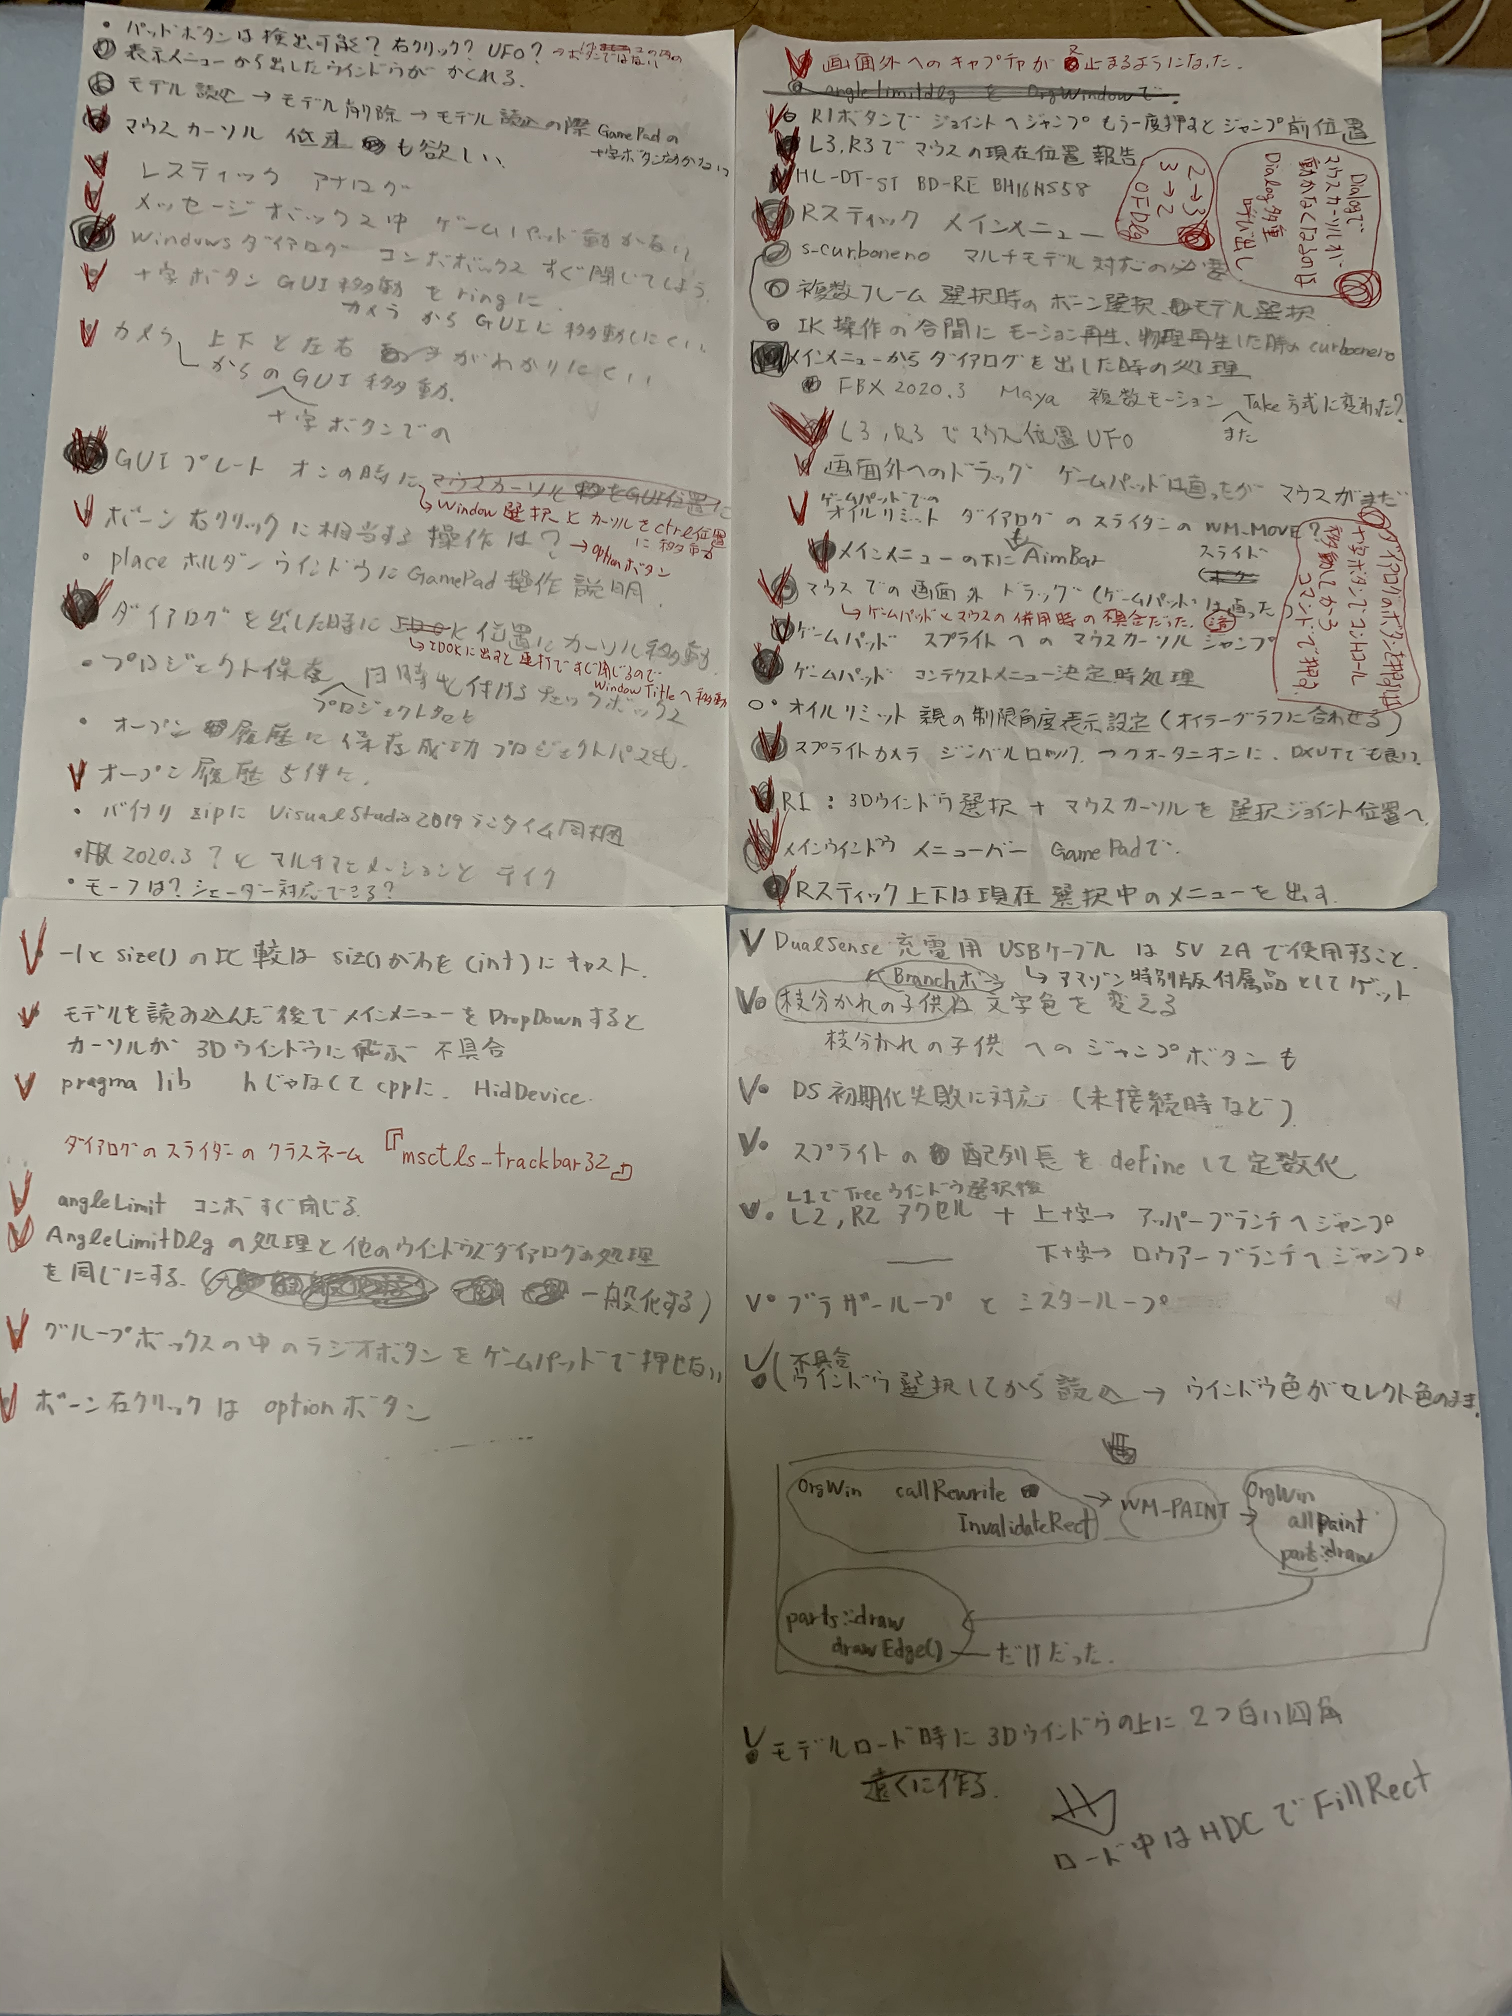 ・パッドボタンは検出可能？右クリック？UFO？
表示メニューから出したウインドウがかくれる。
モデル読込→モデル削除→モデル読込の際 GamePadの
十字ボタン
マウスカーソル 低速も欲しい、
Lスティック アナログ
メッセージボックス中 ゲームパッド動かない
Windowsダイアログ コンボボックスすぐ閉じてしまう。
十字ボタン GUI移動をringに
カメラからGUIに移動しにくい、
カメラ 上下と左右 がわかりにくい
からのGUI移動、
十字ボタンでの
GUIプレート オンの時に マウスカーソルをGUI位置に
Window選択とカーソルをctrl位置
に移動
ボーン右クリックに相当する操作は？→optionボタン
・placeホルダウインドウにGamePad操作説明、
ダイアログを出した時に IDOK位置にカーソル移動。
IDOKに出すと連打ですぐ閉じるので
Window Titleへ移動
・プロジェクト保存 日時も付けるチェックボックス
プロジェクト名も
・オープン履歴に保存成功プロジェクトパスも、
オープン履歴5件に、
・バイナリzipに VisualStudio2019ランタイム同梱
・FBX 2020.3？とマルチアニメーションと テイク
・モーフは？シェーダー対応できる？
画面外へのキャプチャが止まるようになった。
anglelimitdlgをOrgWindowで、
R1ボタンでジョイントへジャンプ もう一度押すとジャンプ前位置
L3,R3でマウスの現在位置報告
HL-DT-ST BD-RE BH16NS58
2→3
3→2
OFDlg
Dialogで
マウスカーソルが
動かなくなるのは
Dialog多重
呼び出し
Rスティック メインメニュー
s-curboneno マルチモデル対応の必要
複数フレーム選択時のボーン選択、モデル選択
IK操作の合間にモーション再生、物理再生した時のcurboneno
メインメニューからダイアログを出した時の処理
FBX 2020.3 Maya 複数モーション Take方式に変わった？
また
L3,R3でマウス位置UFO
画面外へのドラッグ ゲームパッドは直ったが マウスがまだ
ゲームパッドでの
オイルリミット ダイアログのスライダーのWM_MOVE？
スライド
メインメニューの下にもAimBar
マウスでの画面外ドラッグ（ゲームパッドは直った）
→ゲームパッドとマウスの併用時の不具合だった。済
ダイアログのボタンを押すのは
十字ボタンでコントロール
移動してから
コマンドで押す
ゲームパッド スプライトへのマウスカーソルジャンプ
ゲームパッド コンテクストメニュー決定時処理
・オイルリミット 親の制限角度表示設定（オイラーグラフに合わせる）
スプライトカメラ ジンバルロック、→クォータニオンに、DXUTでも良い、
R1：3Dウインドウ選択 + マウスカーソルを選択ジョイント位置へ、
メインウインドウ メニューバー GamePadで、
Rスティック上下は現在選択中のメニューを出す、
-1とsize()の比較はsize()がわを(int)にキャスト、
モデルを読み込んだ後でメインメニューをDropDownすると
カーソルが3Dウインドウに飛ぶ不具合
pragma lib hじゃなくてcppに、HidDevice.
ダイアログのスライダーのクラスネーム『msctls_trackbar32』
angleLimit コンボすぐ閉じる
AngleLimitDlgの処理と他のウインドウズダイアログの処理
を同じにする（ 一般化する）
グループボックスの中のラジオボタンをゲームパッドで押せない
ボーン右クリックは optionボタン
DualSense充電用 USBケーブルは 5V 2Aで使用すること、
→アマゾン特別版付属品としてゲット
Branchボーン
枝分かれの子供は文字色を変える
枝分かれの子供へのジャンプボタンも
DS初期化失敗に対応（未接続時など）
スプライトの配列長をdefineして定数化
L1でTreeウインドウ選択後
L2,R2アクセル + 上十字→アッパーブランチへジャンプ
下十字→ロウアーブランチへジャンプ
ブラザーループとシスターループ
不具合
ウインドウ選択してから読込→ウインドウ色がセレクト色のまま、
OrgWin callRewrite
InvalidateRect
→WM-PAINT→
OrgWin
allpaint
parts::draw
parts::draw
drawEdge()
だけだった、
モデルロード時に3Dウインドウの上に2つ白い四角
遠くに作る、
ロード中はHDCでFillRect